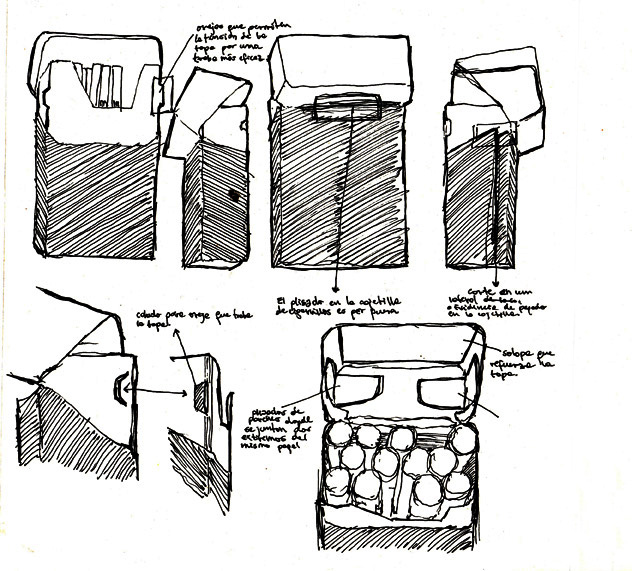 orejas que permiten
la tensión de la
tapa por una
traba más eficaz
El plisado en la cajetilla
de cigarrillos es por
corte en un
lateral
evidencia de pegado
en la cajetilla
calado para oreja que traba
la tapa
solapa que
refuerza la
tapa
plisados de
donde
se juntan dos
extremos del
mismo papel